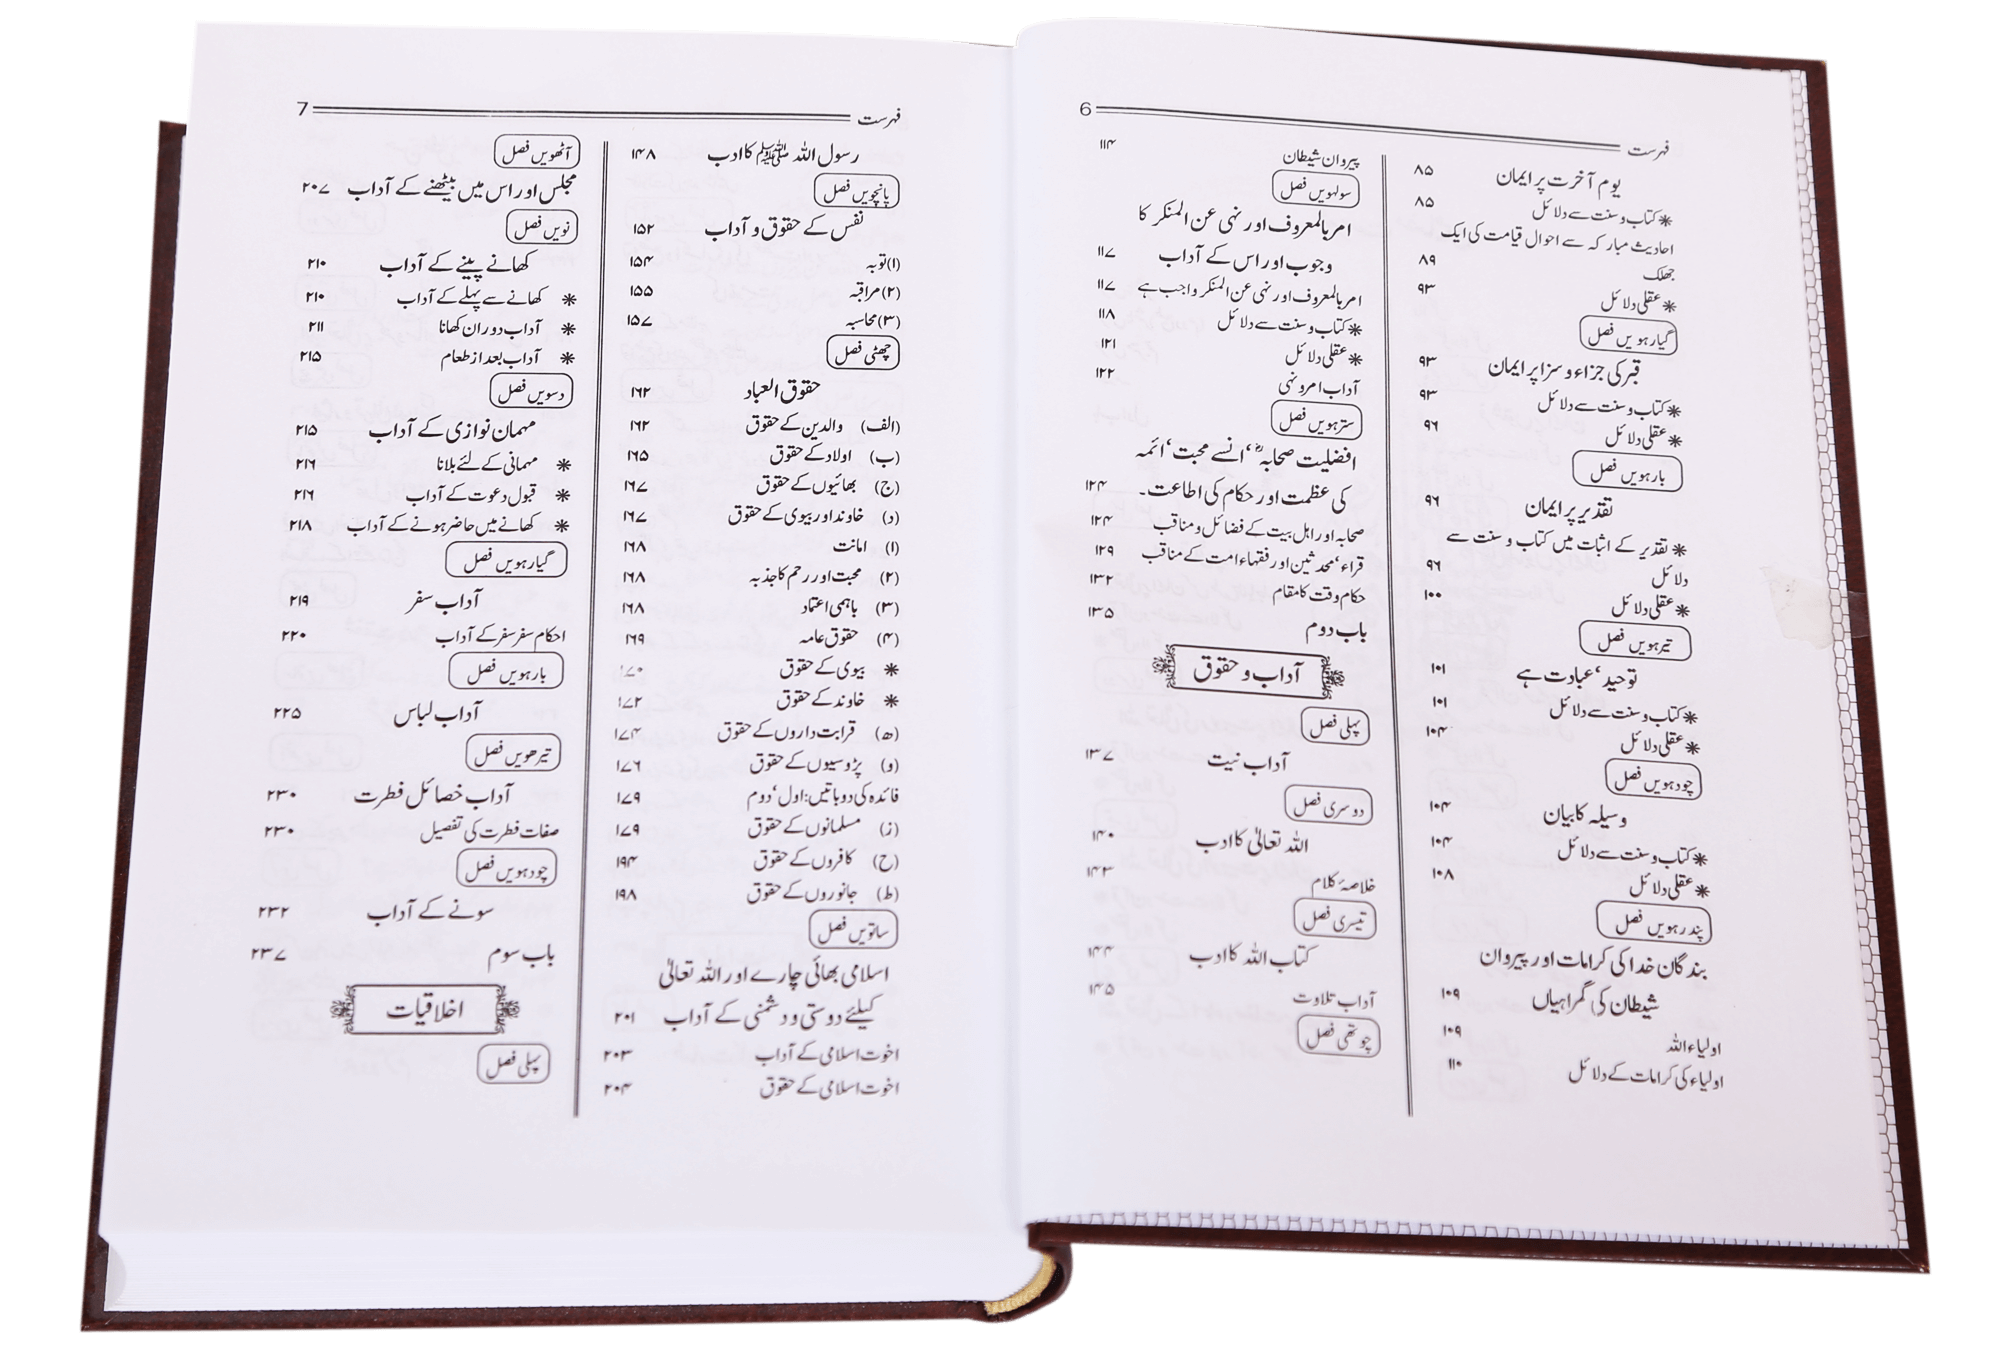 6
فہرست
یوم آخرت پر ایمان ۸۵
❋ کتاب و سنت سے دلائل ۸۵
احادیث مبارکہ سے احوال قیامت کی ایک
جھلک ۸۹
❋ عقلی دلائل ۹۳
گیارہویں فصل
قبر کی جزاء و سزا پر ایمان ۹۳
❋ کتاب و سنت سے دلائل ۹۳
❋ عقلی دلائل ۹۶
بارہویں فصل
تقدیر پر ایمان ۹۶
❋ تقدیر کے اثبات میں کتاب و سنت سے
دلائل ۹۶
❋ عقلی دلائل ۱۰۰
تیرہویں فصل
توحید‘ عبادت ہے ۱۰۱
❋ کتاب و سنت سے دلائل ۱۰۱
❋ عقلی دلائل ۱۰۴
چودہویں فصل
وسیلہ کا بیان ۱۰۴
❋ کتاب و سنت سے دلائل ۱۰۴
❋ عقلی دلائل ۱۰۸
پندرہویں فصل
بندگان خدا کی کرامات اور پیروان
شیطان کی گمراہیاں ۱۰۹
اولیاء اللہ ۱۰۹
اولیاء کی کرامات کے دلائل ۱۱۰
پیروان شیطان ۱۱۴
سولہویں فصل
امر بالمعروف اور نہی عن المنکر کا
وجوب اور اس کے آداب ۱۱۷
امر بالمعروف اور نہی عن المنکر واجب ہے ۱۱۷
❋ کتاب و سنت سے دلائل ۱۱۸
❋ عقلی دلائل ۱۲۱
آداب امر و نہی ۱۲۲
سترہویں فصل
افضلیت صحابہؓ ‘ انسے محبت‘ ائمہ
کی عظمت اور حکام کی اطاعت۔ ۱۲۴
صحابہ اور اہل بیت کے فضائل و مناقب ۱۲۴
قراء‘ محدثین اور فقہاء امت کے مناقب ۱۲۹
حکام وقت کا مقام ۱۳۲
باب دوم ۱۳۵
آداب و حقوق
پہلی فصل
آداب نیت ۱۳۷
دوسری فصل
اللہ تعالیٰ کا ادب ۱۴۰
خلاصۂ کلام ۱۴۳
تیسری فصل
کتاب اللہ کا ادب ۱۴۴
آداب تلاوت ۱۴۵
چوتھی فصل
7
فہرست
رسول اللہ ﷺ کا ادب ۱۴۸
پانچویں فصل
نفس کے حقوق و آداب ۱۵۲
(۱) توبہ ۱۵۴
(۲) مراقبہ ۱۵۵
(۳) محاسبہ ۱۵۷
چھٹی فصل
حقوق العباد ۱۶۲
(الف) والدین کے حقوق ۱۶۲
(ب) اولاد کے حقوق ۱۶۵
(ج) بھائیوں کے حقوق ۱۶۷
(د) خاوند اور بیوی کے حقوق ۱۶۷
(۱) امانت ۱۶۸
(۲) محبت اور رحم کا جذبہ ۱۶۸
(۳) باہمی اعتماد ۱۶۸
(۴) حقوق عامہ ۱۶۹
❋ بیوی کے حقوق ۱۷۰
❋ خاوند کے حقوق ۱۷۲
(ھ) قرابت داروں کے حقوق ۱۷۴
(و) پڑوسیوں کے حقوق ۱۷۶
فائدہ کی دو باتیں: اول‘ دوم ۱۷۹
(ز) مسلمانوں کے حقوق ۱۷۹
(ح) کافروں کے حقوق ۱۹۴
(ط) جانوروں کے حقوق ۱۹۸
ساتویں فصل
اسلامی بھائی چارے اور اللہ تعالیٰ
کیلئے دوستی و دشمنی کے آداب ۲۰۱
اخوت اسلامی کے آداب ۲۰۳
اخوت اسلامی کے حقوق ۲۰۴
آٹھویں فصل
مجلس اور اس میں بیٹھنے کے آداب ۲۰۷
نویں فصل
کھانے پینے کے آداب ۲۱۰
❋ کھانے سے پہلے کے آداب ۲۱۰
❋ آداب دوران کھانا ۲۱۱
❋ آداب بعد از طعام ۲۱۵
دسویں فصل
مہمان نوازی کے آداب ۲۱۵
❋ مہمانی کے لئے بلانا ۲۱۶
❋ قبول دعوت کے آداب ۲۱۶
❋ کھانے میں حاضر ہونے کے آداب ۲۱۸
گیارہویں فصل
آداب سفر ۲۱۹
احکام سفر سفر کے آداب ۲۲۰
بارہویں فصل
آداب لباس ۲۲۵
تیرھویں فصل
آداب خصائل فطرت ۲۳۰
صفات فطرت کی تفصیل ۲۳۰
چودہویں فصل
سونے کے آداب ۲۳۲
باب سوم ۲۳۷
اخلاقیات
پہلی فصل